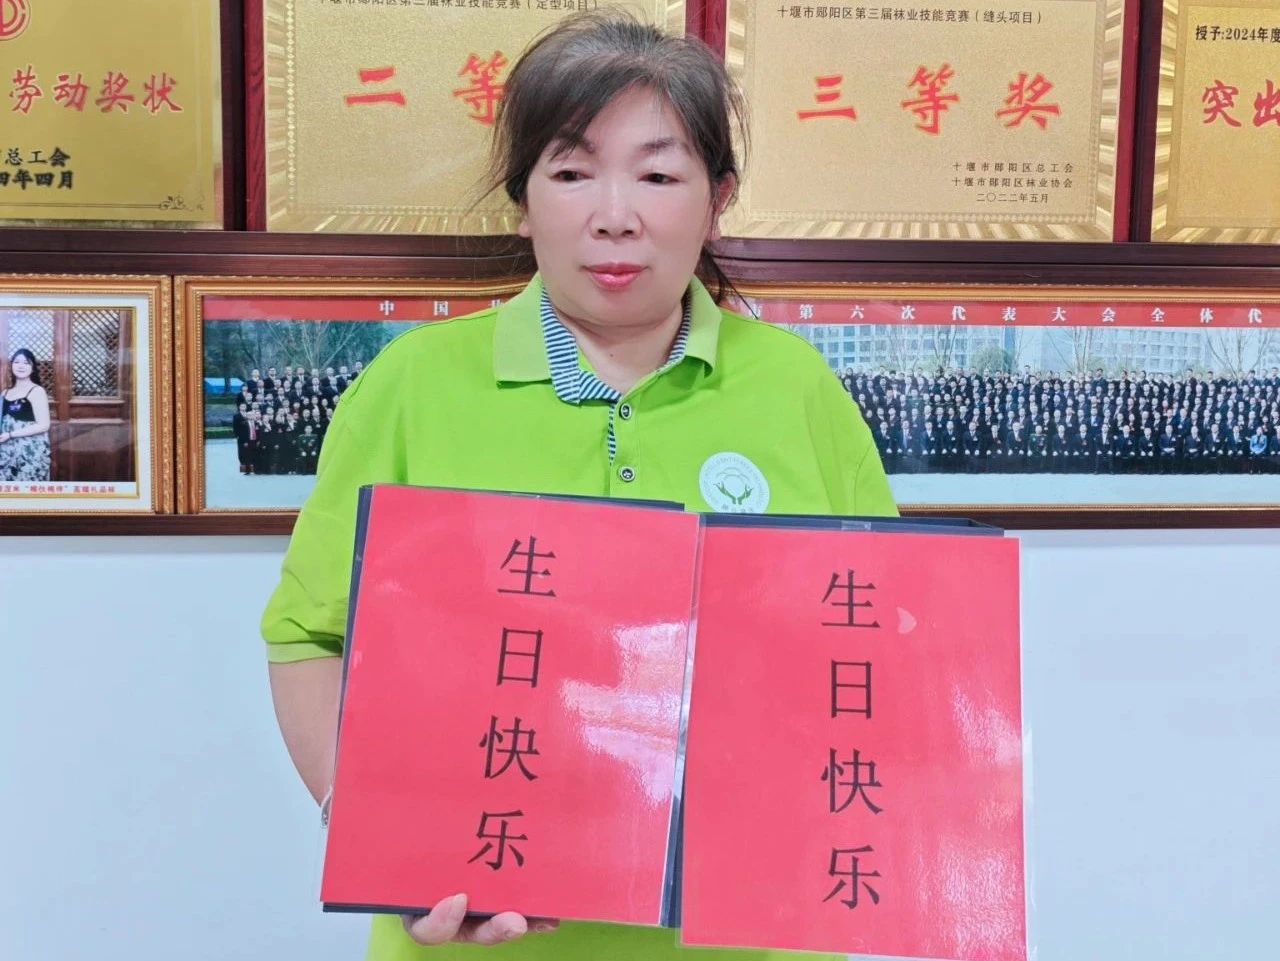 劳动奖状
总工会
四年四月
十堰市郧阳区第三届袜业技能竞赛(定型项目)
二等
十堰市郧阳区第三届袜业技能竞赛(缝头项目)
三等奖
十堰市郧阳区总工会
十堰市郧阳区袜业协会
二〇二二年五月
授予:2024年度
突出
中国
第六次代表大会全体代
高端礼品袜
生日快乐
生日快乐